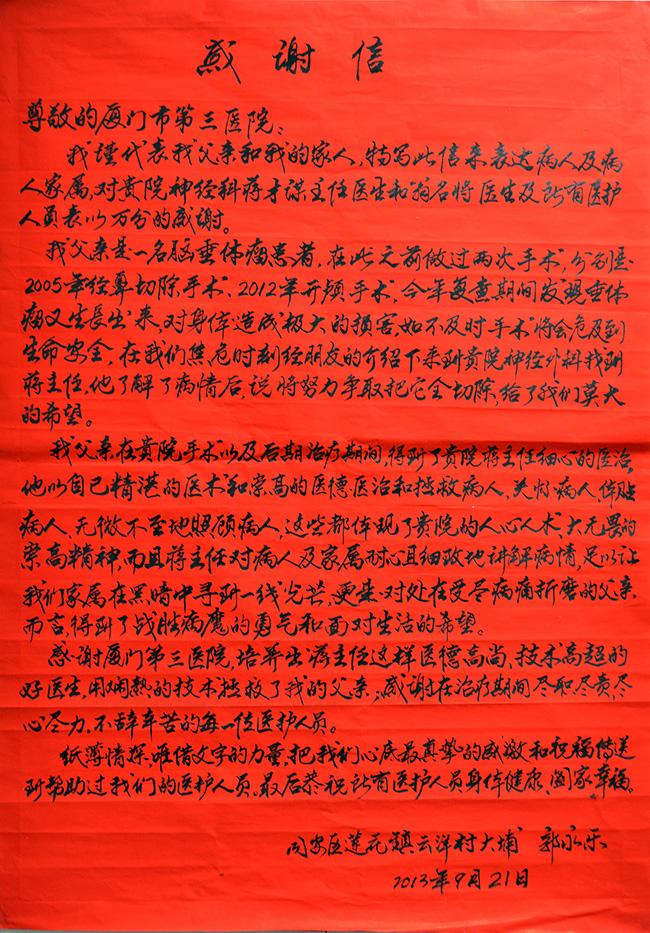 感谢信
尊敬的厦门市第三医院：
我谨代表我父亲和我的家人，特写此信来表达病人及病
人家属，对贵院神经科蒋才谋主任医生和 名将医生及所有医护
人员表以万分的感谢。
我父亲是一名脑垂体瘤患者，在此之前做过两次手术，分别是
2005年经鼻切除手术、2012年开颅手术，今年复查期间发现垂体
瘤又生長出来，对身体造成极大的损害，如不及时手术将会危及到
生命安全，在我们焦危时刻经朋友的介绍下来到贵院神经外科找到
蒋主任，他了解了病情后，说将努力争取把它全切除，给了我们莫大
的希望。
我父亲在贵院手术以及后期治疗期间，得到了贵院蒋主任细心的医治，
他以自已精港的医术和崇高的医德医治和拯救病人，关怀病人，体贴
病人，无微不至地照顾病人，这些都体现了贵院的人心人术，大无畏的
崇高精神，而且蒋主任对病人及家属耐心且细致地讲解病情，足以让
我们家属在黑暗中寻到一线光芒，更是对处在受尽病痛折磨的父亲
而言，得到了战胜病魔的勇气和面对生活的希望。
感谢厦门第三医院，培养出蒋主任这样医德高尚、技术高超的
好医生，用娴熟的技术拯救了我的父亲；感谢在治疗期间尽职尽责，尽
心尽力，不辞辛苦的每一位医护人员。
纸薄情深，唯借文字的力量，把我们心底最真挚的感激和祝福传送
到帮助过我们的医护人员。最后恭祝所有医护人员身体健康、阖家幸福。
同安区莲花镇云洋村大埔 郭永乐
2013年9月21日